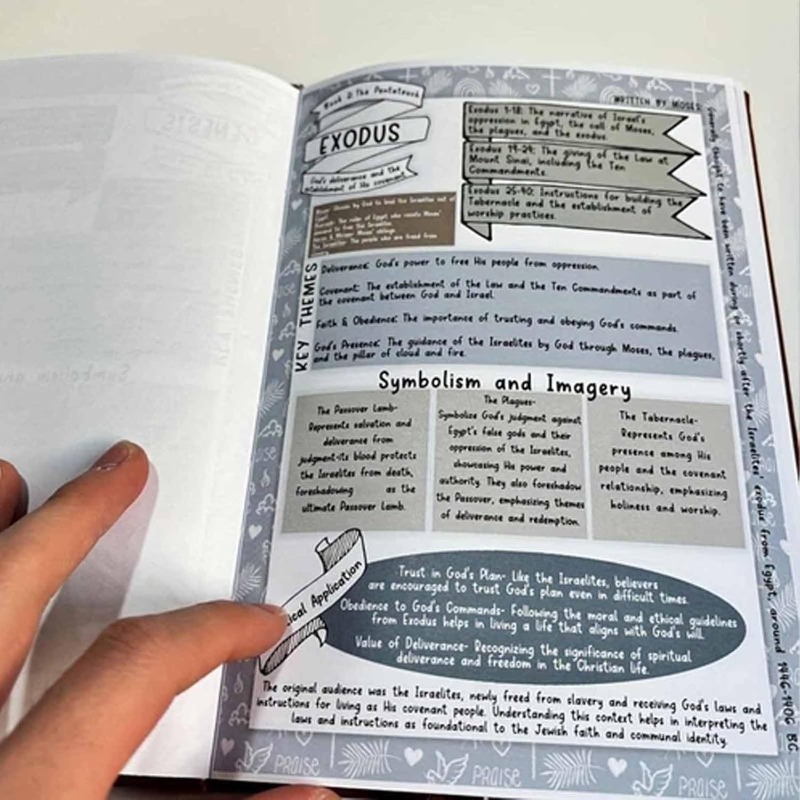 Book 2: The Pentateuch
EXODUS
God's deliverance and the
establishment of His covenant
WRITTEN BY MOSES
Exodus 1-18: The narrative of Israel's
oppression in Egypt, the call of Moses,
the plagues, and the exodus.
Exodus 19-24: The giving of the Law at
Mount Sinai, including the Ten
Commandments.
Exodus 25-40: Instructions for building the
Tabernacle and the establishment of
worship practices.
Moses: Chosen by God to lead the Israelites out of
Pharaoh: The ruler of Egypt who resists Moses'
demand to free the Israelites.
Aaron & Miriam: Moses' siblings
The Israelites: The people who are freed from
KEY THEMES
Deliverance: God's power to free His people from oppression.
Covenant: The establishment of the Law and the Ten Commandments as part of
the covenant between God and Israel.
Faith & Obedience: The importance of trusting and obeying God's commands.
God's Presence: The guidance of the Israelites by God through Moses, the plagues,
and the pillar of cloud and fire.
Symbolism and Imagery
The Passover Lamb-
Represents salvation and
deliverance from
judgment-its blood protects
the Israelites from death,
foreshadowing as the
ultimate Passover Lamb.
The Plagues-
Symbolize God's judgment against
Egypt's false gods and their
oppression of the Israelites,
showcasing His power and
authority. They also foreshadow
the Passover, emphasizing themes
of deliverance and redemption.
The Tabernacle-
Represents God's
presence among His
people and the covenant
relationship, emphasizing
holiness and worship.
Application
Trust in God's Plan- Like the Israelites, believers
are encouraged to trust God's plan even in difficult times.
Obedience to God's Commands- Following the moral and ethical guidelines
from Exodus helps in living a life that aligns with God's will.
Value of Deliverance- Recognizing the significance of spiritual
deliverance and freedom in the Christian life.
The original audience was the Israelites, newly freed from slavery and receiving God's laws and
instructions for living as His covenant people. Understanding this context helps in interpreting the
laws and instructions as foundational to the Jewish faith and communal identity.
Generally thought to have been written during or shortly after the Israelites' exodus from Egypt, around 1446-1406 BC.
PRAISE
PRAISE
PRAISE
GENESIS